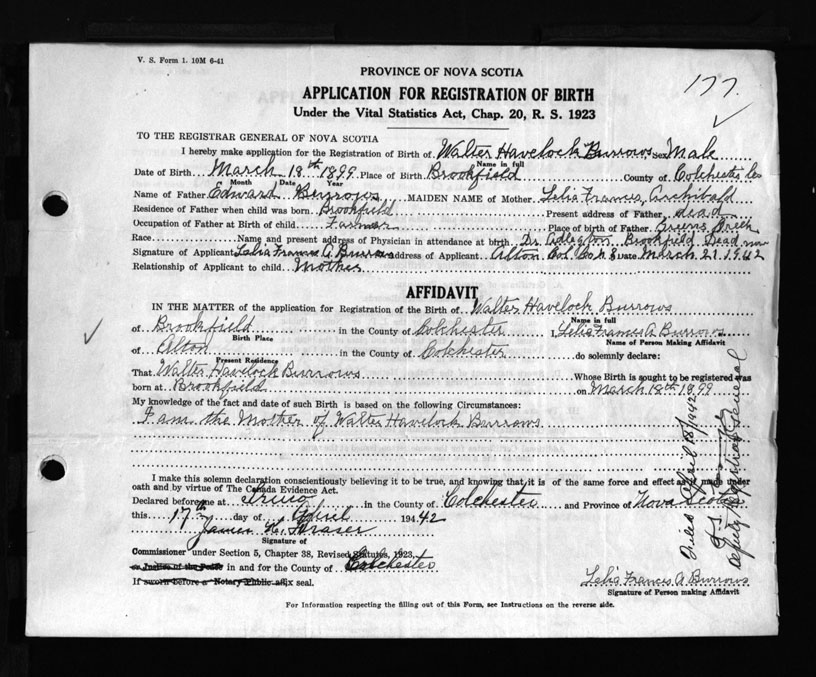 V. S. Form 1. 10M 6-41
177.
PROVINCE OF NOVA SCOTIA
APPLICATION FOR REGISTRATION OF BIRTH
Under the Vital Statistics Act, Chap. 20, R. S. 1923
TO THE REGISTRAR GENERAL OF NOVA SCOTIA
I hereby make application for the Registration of Birth of Walter Havelock Burrows Sex Male
Name in full
Date of Birth March 18th 1899 Place of Birth Brookfield County of Colchester Co
Month Date Year
Name of Father Edward Burrows MAIDEN NAME of Mother Lelis Frances Archibald
Residence of Father when child was born Brookfield Present address of Father dead
Occupation of Father at Birth of child Farmer Place of birth of Father Greens Creek
Race Name and present address of Physician in attendance at birth Dr Brookfield Dead now
Signature of Applicant Lelis Frances A Burrows Address of Applicant Alton Col. Co N S Date March 21 1942
Relationship of Applicant to child Mother
AFFIDAVIT
IN THE MATTER of the application for Registration of the Birth of Walter Havelock Burrows
Name in full
of Brookfield in the County of Colchester I, Lelis Frances A Burrows
Birth Place Name of Person Making Affidavit
of Alton in the County of Colchester do solemnly declare:
Present Residence
That Walter Havelock Burrows Whose Birth is sought to be registered was
born at Brookfield on March 18th 1899
My knowledge of the fact and date of such Birth is based on the following Circumstances:
I am the Mother of Walter Havelock Burrows
I make this solemn declaration conscientiously believing it to be true, and knowing that it is of the same force and effect as if made under
oath and by virtue of The Canada Evidence Act.
Declared before me at Truro in the County of Colchester and Province of Nova Scotia
this 17th day of April 1942
James K. Fraser
Signature of
Commissioner under Section 5, Chapter 38, Revised Statutes, 1923,
or Justice of the Peace in and for the County of Colchester
If sworn before a Notary Public affix seal.
Lelis Francis A Burrows
Signature of Person making Affidavit
For Information respecting the filling out of this Form, see Instructions on the reverse side.
Filed April 18/1942
Deputy Registrar General